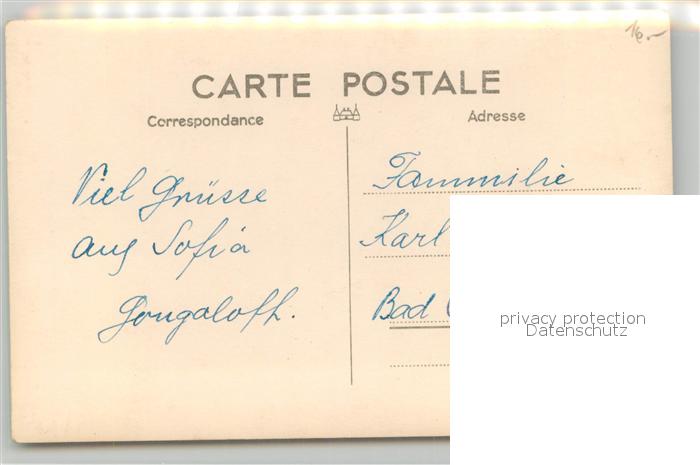 16.-
CARTE POSTALE
Correspondance
Adresse
Viel Grüsse
aus Sofia
Fammilie
Karl
Bad
privacy protection
Datenschutz